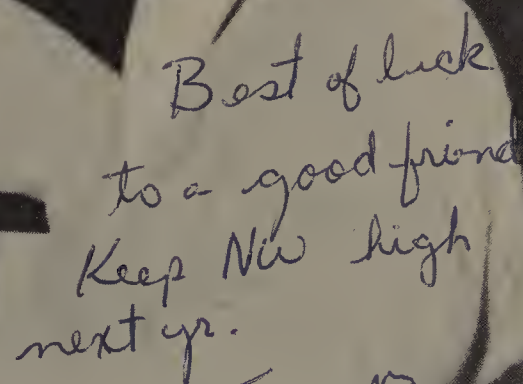 Best of luck
to a good friend
Keep NW high
next yr.